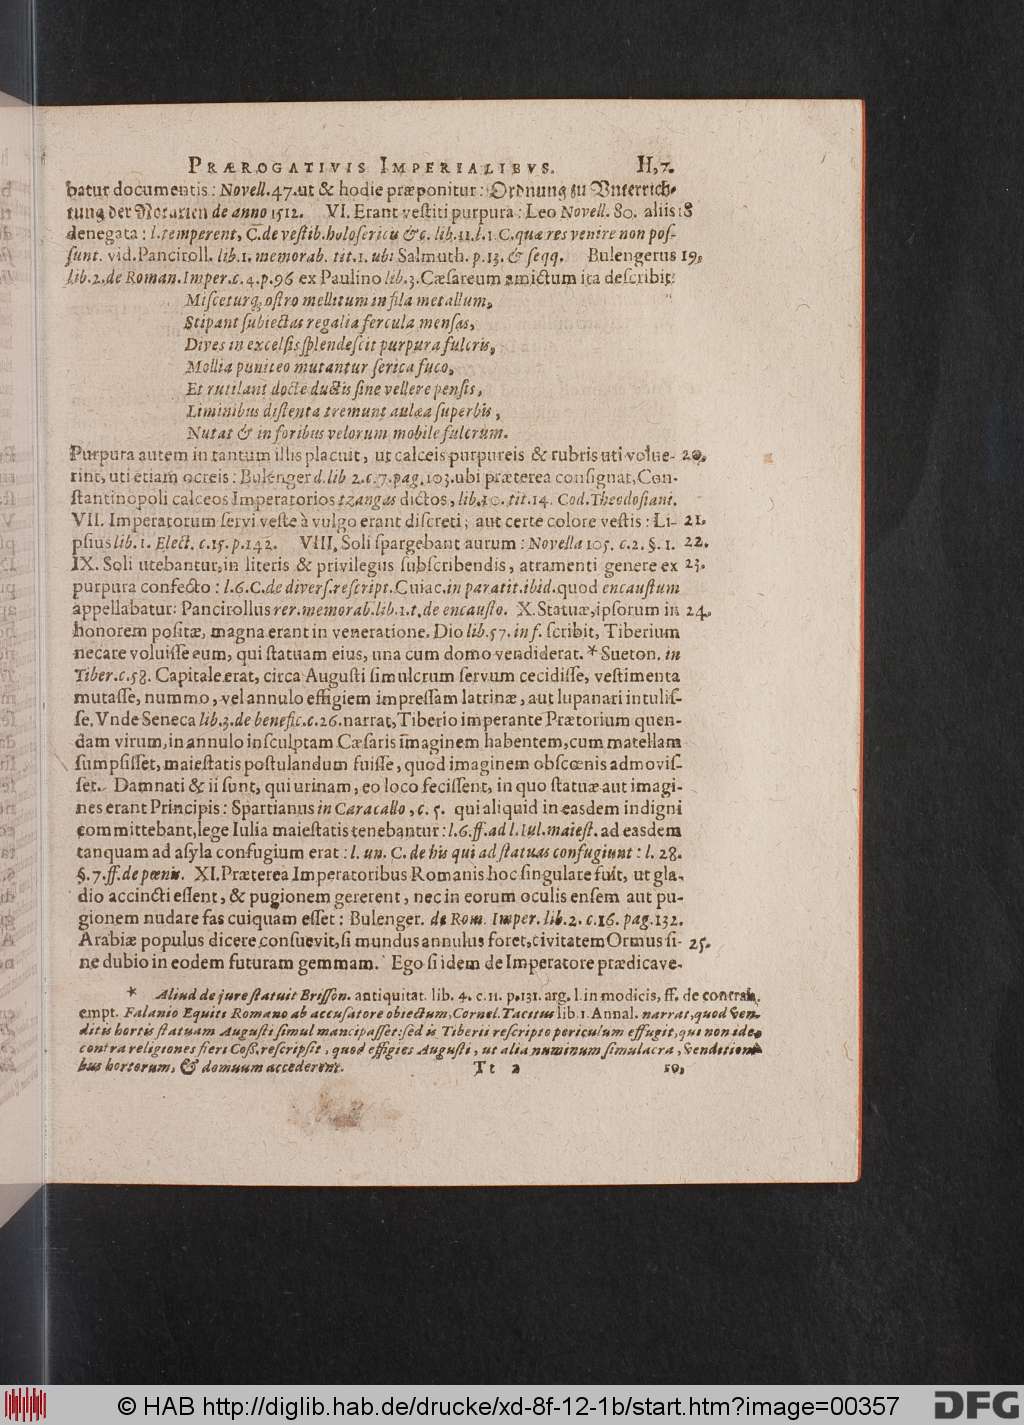 PRÆROGATIVIS IMPERIALIBVS. H, 7.
batur documentis: Novell. 47. ut & hodie præponitur: Ordnung zu Vnterrich-
tung der Notarien de anno 1512. VI. Erant vestiti purpura: Leo Novell. 80. aliis 18
denegata: l. temperent, C. de vestib. holosericis &c. lib. 11. l. 1. C. quæ res venire non pos-
sunt. vid. Panciroll. lib. 1. memorab. tit. 1. ubi Salmuth. p. 13. & seqq. Bulengerus 19,
lib. 2. de Roman. Imper. c. 4. p. 96 ex Paulino lib. 3. Cæsareum amictum ita describit:
Misceturq, ostro mellitum in fila metallum,
Stipant subiectas regalia fercula mensas,
Dives in excelsis splendescit purpura fulcris,
Mollia puniceo mutantur serica fuco,
Et rutilant docte ductis sine vellere pensis,
Liminibus distenta tremunt aulæa superbis,
Nutat & in foribus velorum mobile fulcrum.
Purpura autem in tantum illis placuit, ut calceis purpureis & rubris uti volue- 20.
rint, uti etiam ocreis: Bulenger d. lib 2. c. 7. pag. 103. ubi præterea consignat, Con-
stantinopoli calceos Imperatorios tzangas dictos, lib. 10. tit. 14. Cod. Theodosiani.
VII. Imperatorum servi veste à vulgo erant discreti; aut certe colore vestis: Li- 21.
psius lib. 1. Elect. c. 15. p. 142. VIII, Soli spargebant aurum: Novella 105. c. 2. §. 1. 22.
IX. Soli utebantur, in literis & privilegiis subscribendis, atramenti genere ex 23.
purpura confecto: l. 6. C. de divers. rescript. Cuiac. in paratit. ibid. quod encaustum
appellabatur: Pancirollus rer. memorab. lib. 1. t. de encausto. X. Statuæ, ipsorum in 24.
honorem positæ, magna erant in veneratione. Dio lib. 57. in f. scribit, Tiberium
necare voluisse eum, qui statuam eius, una cum domo vendiderat. * Sueton. in
Tiber. c. 58. Capitale erat, circa Augusti simulcrum servum cecidisse, vestimenta
mutasse, nummo, vel annulo effigiem impressam latrinæ, aut lupanari intulis-
se. Vnde Seneca lib. 3. de benefic. c. 26. narrat, Tiberio imperante Prætorium quen-
dam virum, in annulo insculptam Cæsaris imaginem habentem, cum matellam
sumpsisset, maiestatis postulandum fuisse, quod imaginem obscœnis admovis-
set. Damnati & ii sunt, qui urinam, eo loco fecissent, in quo statuæ aut imagi-
nes erant Principis: Spartianus in Caracallo, c. 5. qui aliquid in easdem indigni
committebant, lege Iulia maiestatis tenebantur: l. 6. ff. ad l. Iul. maiest. ad easdem
tanquam ad asyla confugium erat: l. un. C. de his qui ad statuas confugiunt: l. 28.
§. 7. ff. de pœnis. XI. Præterea Imperatoribus Romanis hoc singulare fuit, ut gla-
dio accincti essent, & pugionem gererent, nec in eorum oculis ensem aut pu-
gionem nudare fas cuiquam esset: Bulenger. de Rom. Imper. lib. 2. c. 16. pag. 132.
Arabiæ populus dicere consuevit, si mundus annulus foret, civitatem Ormus si- 25.
ne dubio in eodem futuram gemmam. Ego si idem de Imperatore prædicave-
* Aliud de jure statuit Brisson. antiquitat. lib. 4. c. 11. p. 131. arg. l. in modicis, ff. de contrah.
empt. Falanio Equiti Romano ab accusatore obiectum, Cornel. Tacitus lib. 1. Annal. narrat, quod ven-
ditis hortis statuam Augusti simul mancipasset: sed is Tiberii rescripto periculum effugit, qui non ideo
contra religiones fieri Coß, rescripsit, quod effigies Augusti, ut alia numinum simulacra, venditioni-
bus hortorum, & domuum accederent. Tt 2 10,
© HAB http://diglib.hab.de/drucke/xd-8f-12-1b/start.htm?image=00357
DFG